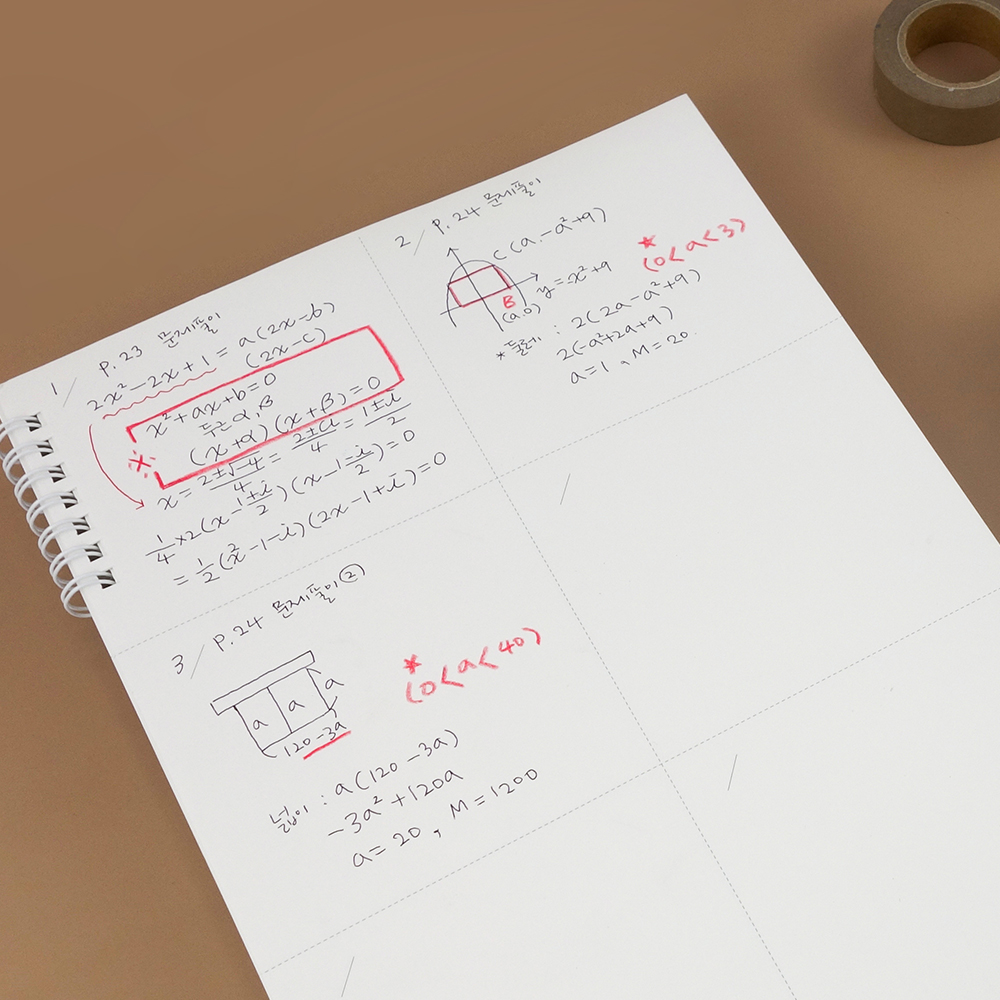 1/ P.23 문제풀이
2x²-2x+1 = a(2x-b)
(2x-c)
x²+ax+b=0
두근 α, β
(x+α)(x+β)=0
x = 2±√-4/4 = 2±2i/4 = 1±i/2
1/4×2(x-1+i/2)(x-1-i/2)=0
= 1/2(x²-1-i)(2x-1+i)=0
2/ P.24 문제풀이
C(a, -a²+9)
y=-x²+9
B
(a,0)
*
(0<a<3)
* 둘레 : 2(2a-a²+9)
2(-a²+2a+9)
a=1, M=20
3/ P.24 문제풀이②
a
a
a
120-3a
*
(0<a<40)
넓이 : a(120-3a)
-3a²+120a
a=20, M=1200